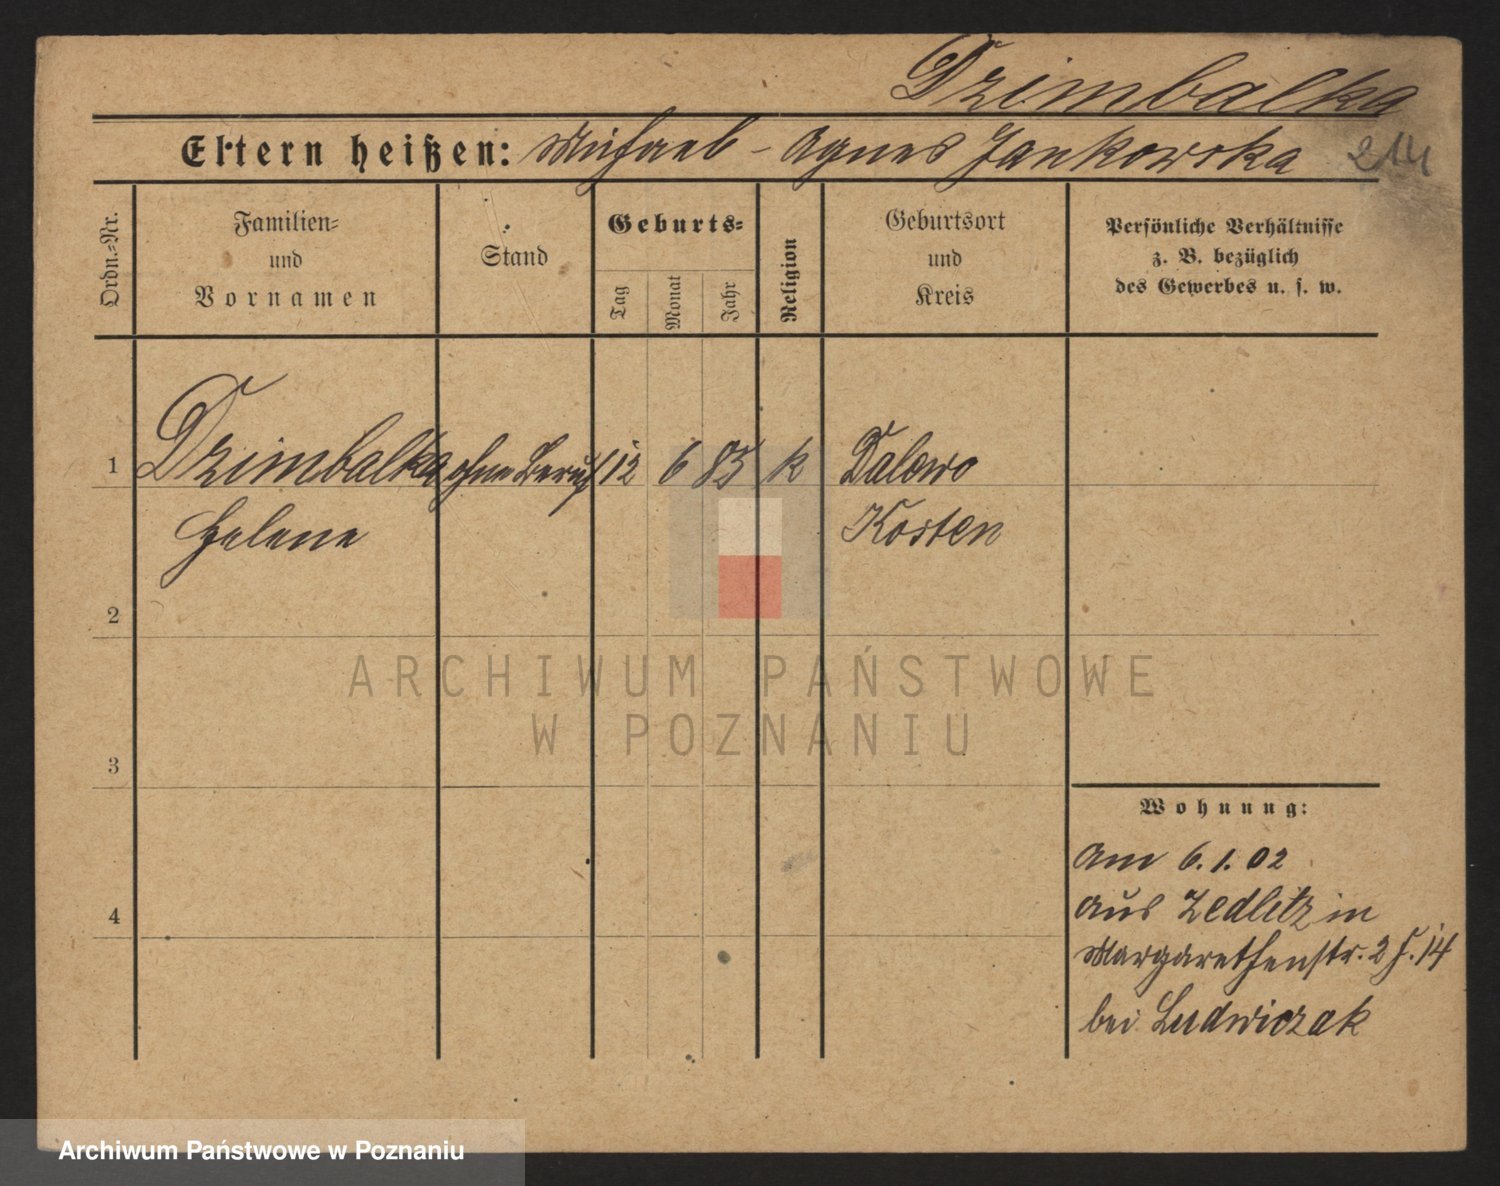 Dzimbalka
Eltern heißen: Michael - Agnes Jankowska 214
Ordn.-Nr.
Familien-
und
Vornamen
Stand
Geburts-
Tag
Monat
Jahr
Religion
Geburtsort
und
Kreis
Persönliche Verhältnisse
z. B. bezüglich
des Gewerbes u. s. w.
1 Dzimbalka ohne Beruf 12 6 83 k Dalewo
Helene Kosten
2
3
4
Wohnung:
Am 6.1.02
aus Zedlitz in
Margarethenstr. 2 H. 14
bei Ludwiczak
ARCHIWUM PAŃSTWOWE
W POZNANIU
Archiwum Państwowe w Poznaniu